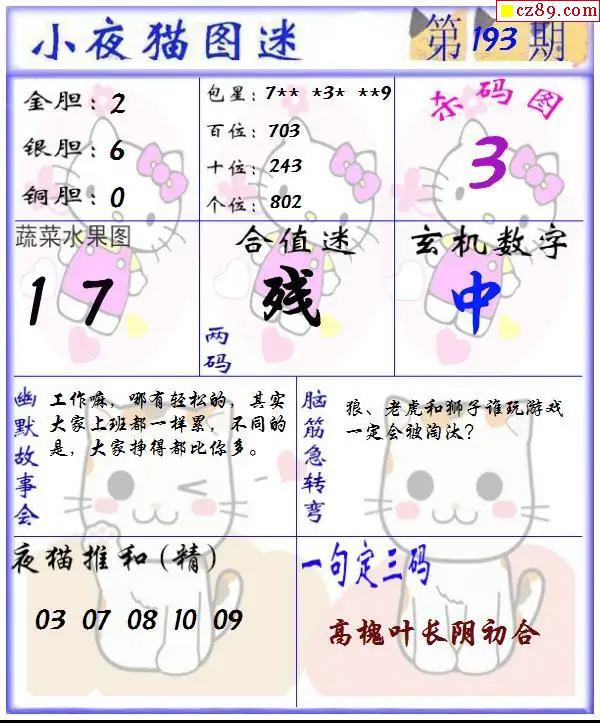 cz89.com
小夜猫图迷
第193期
金胆：2
银胆：6
铜胆：0
包星：7** *3* **9
百位：703
十位：243
个位：802
杀码图
3
蔬菜水果图
1 7
合值迷
残
两码
玄机数字
中
幽默故事会
工作嘛，哪有轻松的，其实
大家上班都一样累，不同的
是，大家挣得都比你多。
脑筋急转弯
狼、老虎和狮子谁玩游戏
一定会被淘汰？
夜猫推和(精)
03 07 08 10 09
一句定三码
高槐叶长阴初合